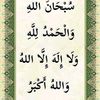 سُبْحَانَ اللهِ
وَالْحَمْدُ لِلّٰهِ
وَلَا إِلٰهَ إِلَّا اللهُ
وَاللهُ أَكْبَرُ